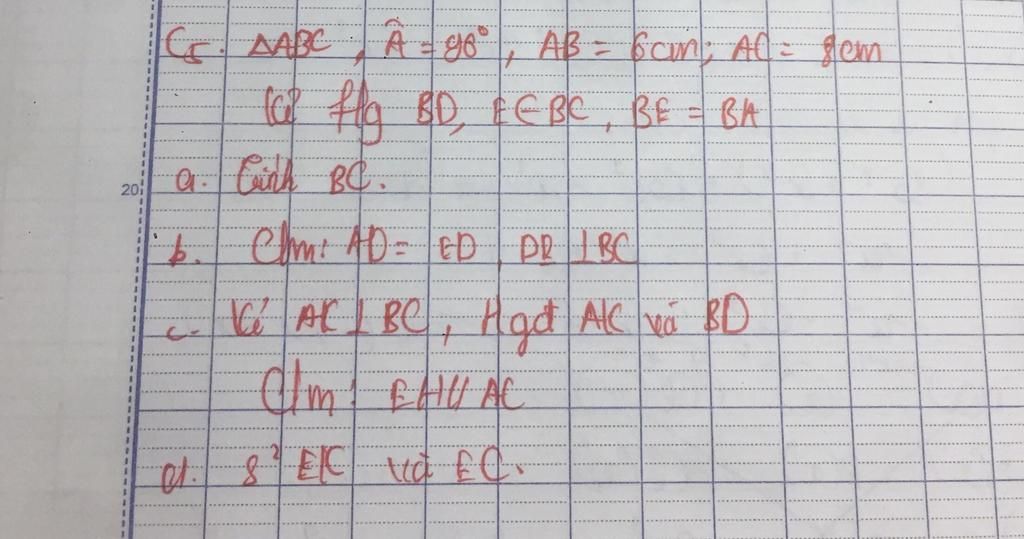 C5. ΔABC, Â = 90°, AB = 6cm; AC = 8cm
Kẻ f/g BD, E∈BC, BE = BA
20
a. Tính BC.
b. C/m: AD = ED, DE ⊥ BC
c- Kẻ AK ⊥ BC, H gđ AK và BD
C/m: EH // AC
d. S² EK và EC.